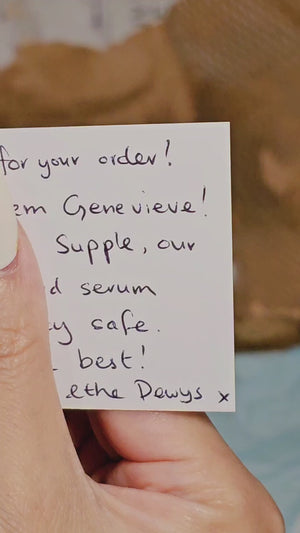 for your order!
em Genevieve!
Supple, our
d serum
y safe.
best!
ethe Dewys x